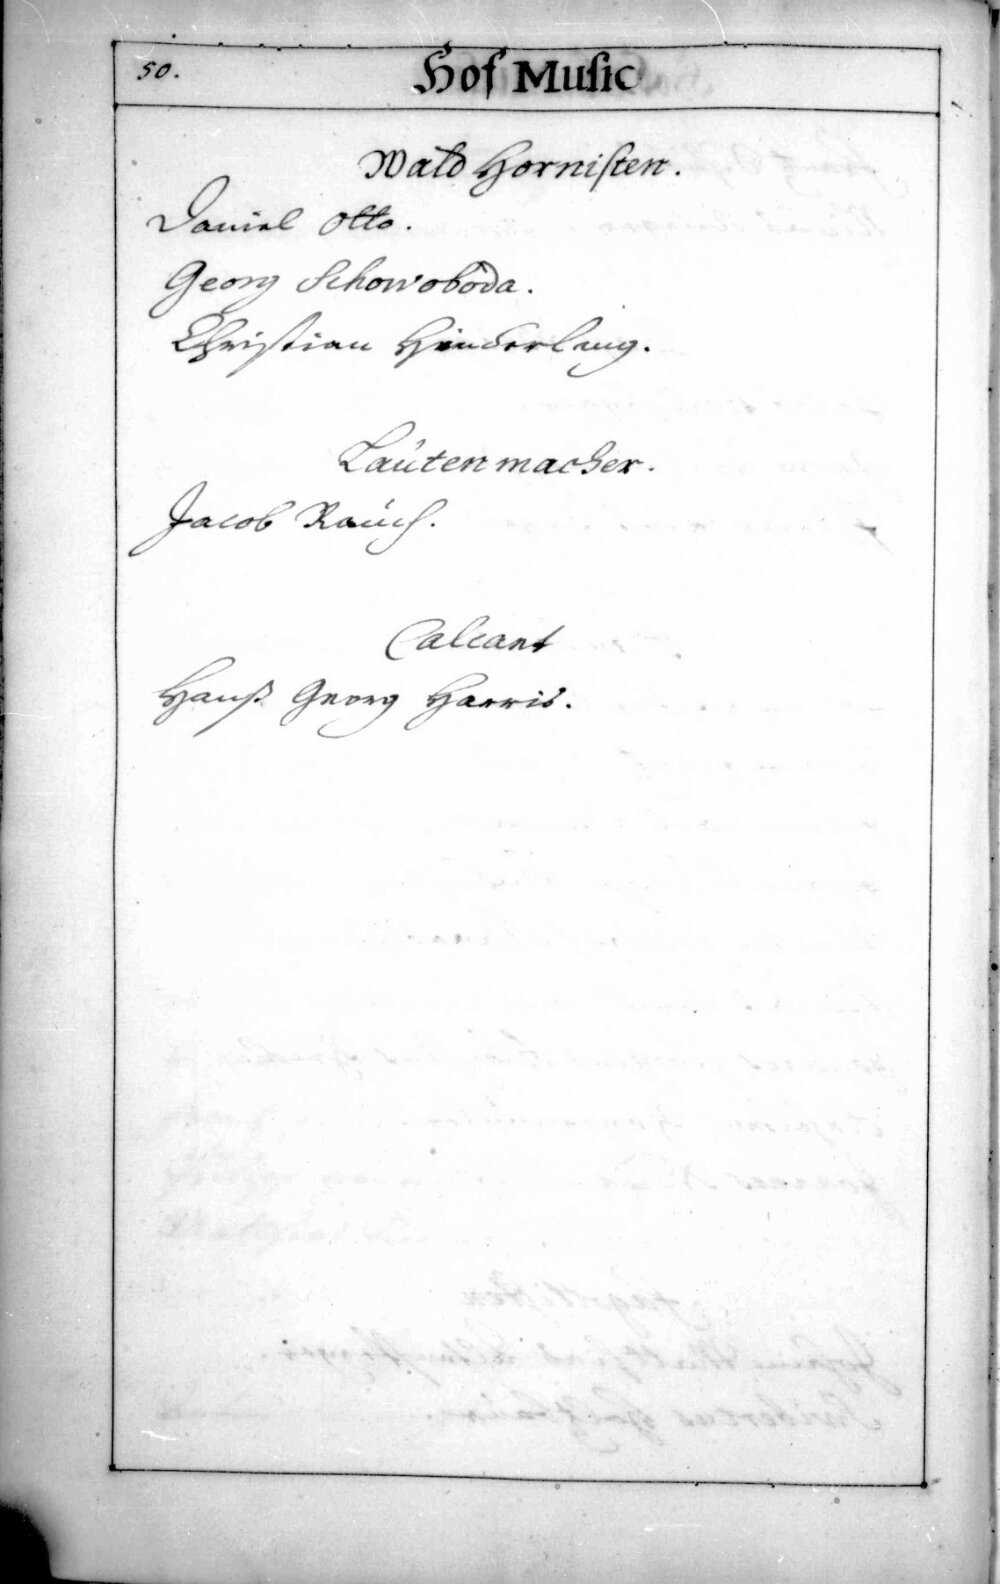 50.
Hof Music
Wald Hornisten.
Daniel Otto.
Georg Schowoboda.
Christian Hinderling.
Lautenmacher.
Jacob Rauch.
Calcant
Hanß Georg Harris.